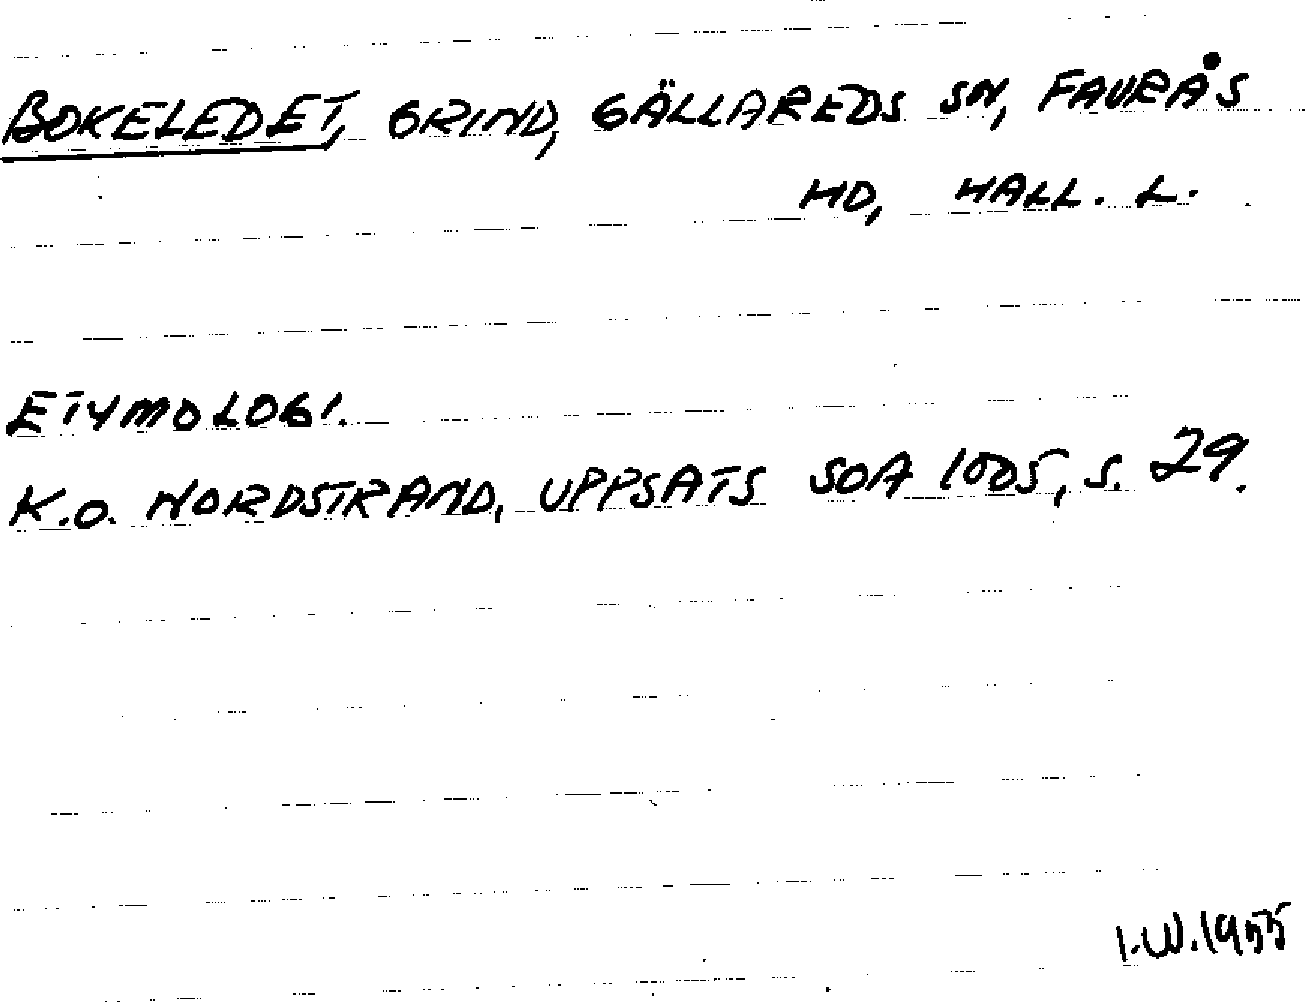 BOKELEDET, GRIND, GÄLLAREDS SN, FAURÅS
HD, HALL. L.
ETYMOLOGI.
K.O. NORDSTRAND, UPPSATS SOA 1005, S. 29.
I.W. 1955